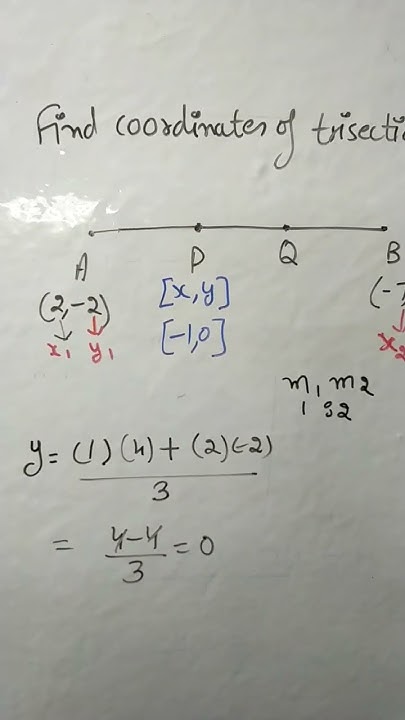 Find coordinates of trisecti
A P Q B
(2,-2) [x,y] (-7
x₁ y₁ [-1,0] x₂
m₁ m₂
1 : 2
y = (1)(4) + (2)(-2)
3
= 4-4 = 0
3